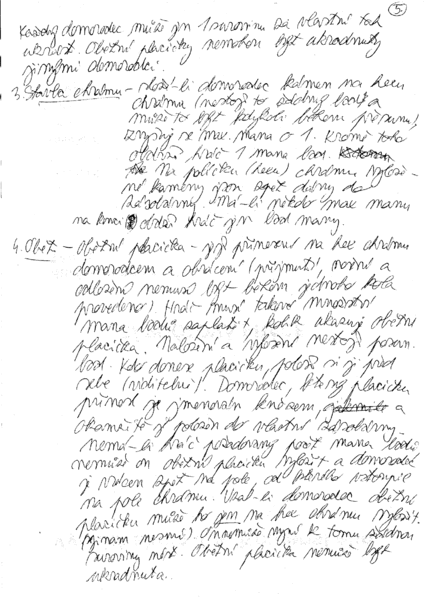 5
Každý domorodec může jen 1 surovinu za vlastní tah
ukrást. Obětní placičky nemohou být ukradnuty
jinými domorodci.
3. Stavba chrámu – složí-li domorodec kámen na hexu
chrámu (nestojí to žádný bod a
může to být kdykoli během přesunu)
zvyšuje se max. mana o 1. Kromě toho
obdrží hráč 1 mana bod.
Na políčku (hexu) chrámu vylože-
né kameny jsou zpět dány do
zásobárny. Má-li někdo max manu
na konci obdrží hráč jen bod many.
4. Oběť – Obětní placička – její přinesení na hex chrámu
domorodcem a obrácení (přijmutí, nošení a
odložení nemusí být během jednoho kola
provedeno). Hráč musí takové množství
mana bodů zaplatit kolik ukazuje obětní
placička. Naložení a vyložení nestojí posun.
bod. Kdo donese placičku, položí si ji před
sebe (viditelně). Domorodec, který placičku
přinesl je jmenován knězem, a
okamžitě je položen do vlastní zásobárny.
Nemá-li hráč požadovaný počet mana bodů
nemůže on obětní placičku vyložit a domorodec
je vrácen zpět na pole, od kterého vstoupil
na pole chrámu. Vzal-li domorodec obětní
placičku může ho jen na hex chrámu vyložit.
(jinam nesmí). On nemůže nyní k tomu žádnou
surovinu nést. Obětní placička nemůže být
ukradnuta.